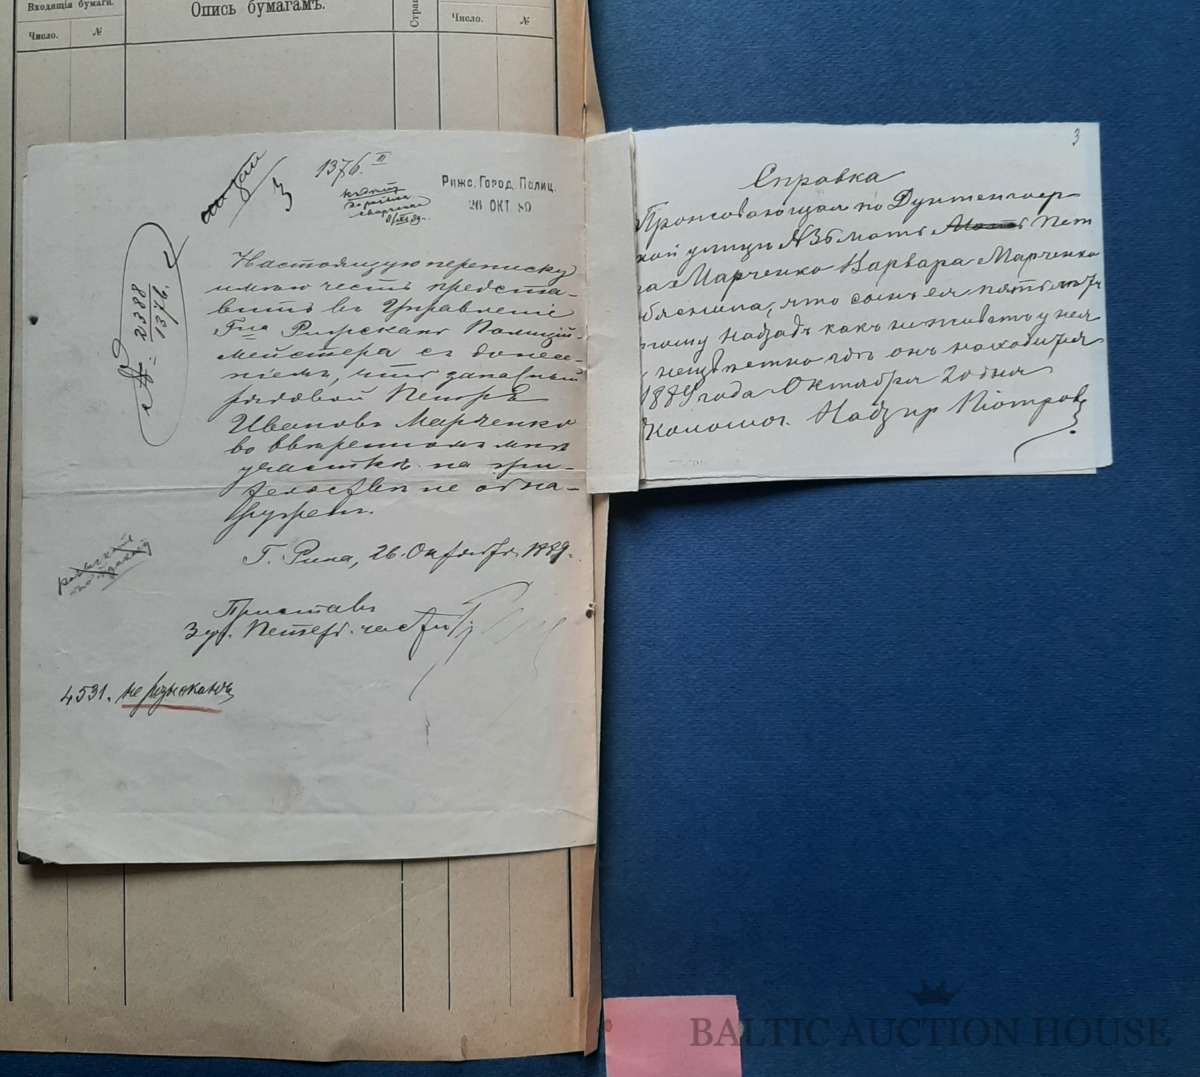 Входящія бумаги.
Опись бумагамъ.
Число.
№
Число.
№
1376.
3
Рижс. Город. Полиц.
26 ОКТ 89
№ 2388
1376
Настоящую переписку
имѣю честь предста-
вить въ Управленіе
Гна Рижскаго Полицій-
мейстера съ донесе-
ніемъ, что запасный
рядовой Петръ
Ивановъ Марченко
во ввѣренномъ мнѣ
участкѣ на жи-
тельствѣ не обна-
руженъ.
Г. Рига, 26 Октября 1889.
Приставъ
3 уч. Петерб. части
4531. не розысканъ
3
Справка
Проживающая по Дунтенгоф
кой улицы №36 мать Пет
ра Марченко Варвара Марченко
объяснила, что сынъ ея пять лѣтъ
тому назадъ какъ не живетъ у нея
неизвѣстно гдѣ онъ находится
1889 года Октября 20 дня
Околоточ. Надзир Піотров
BALTIC AUCTION HOUSE